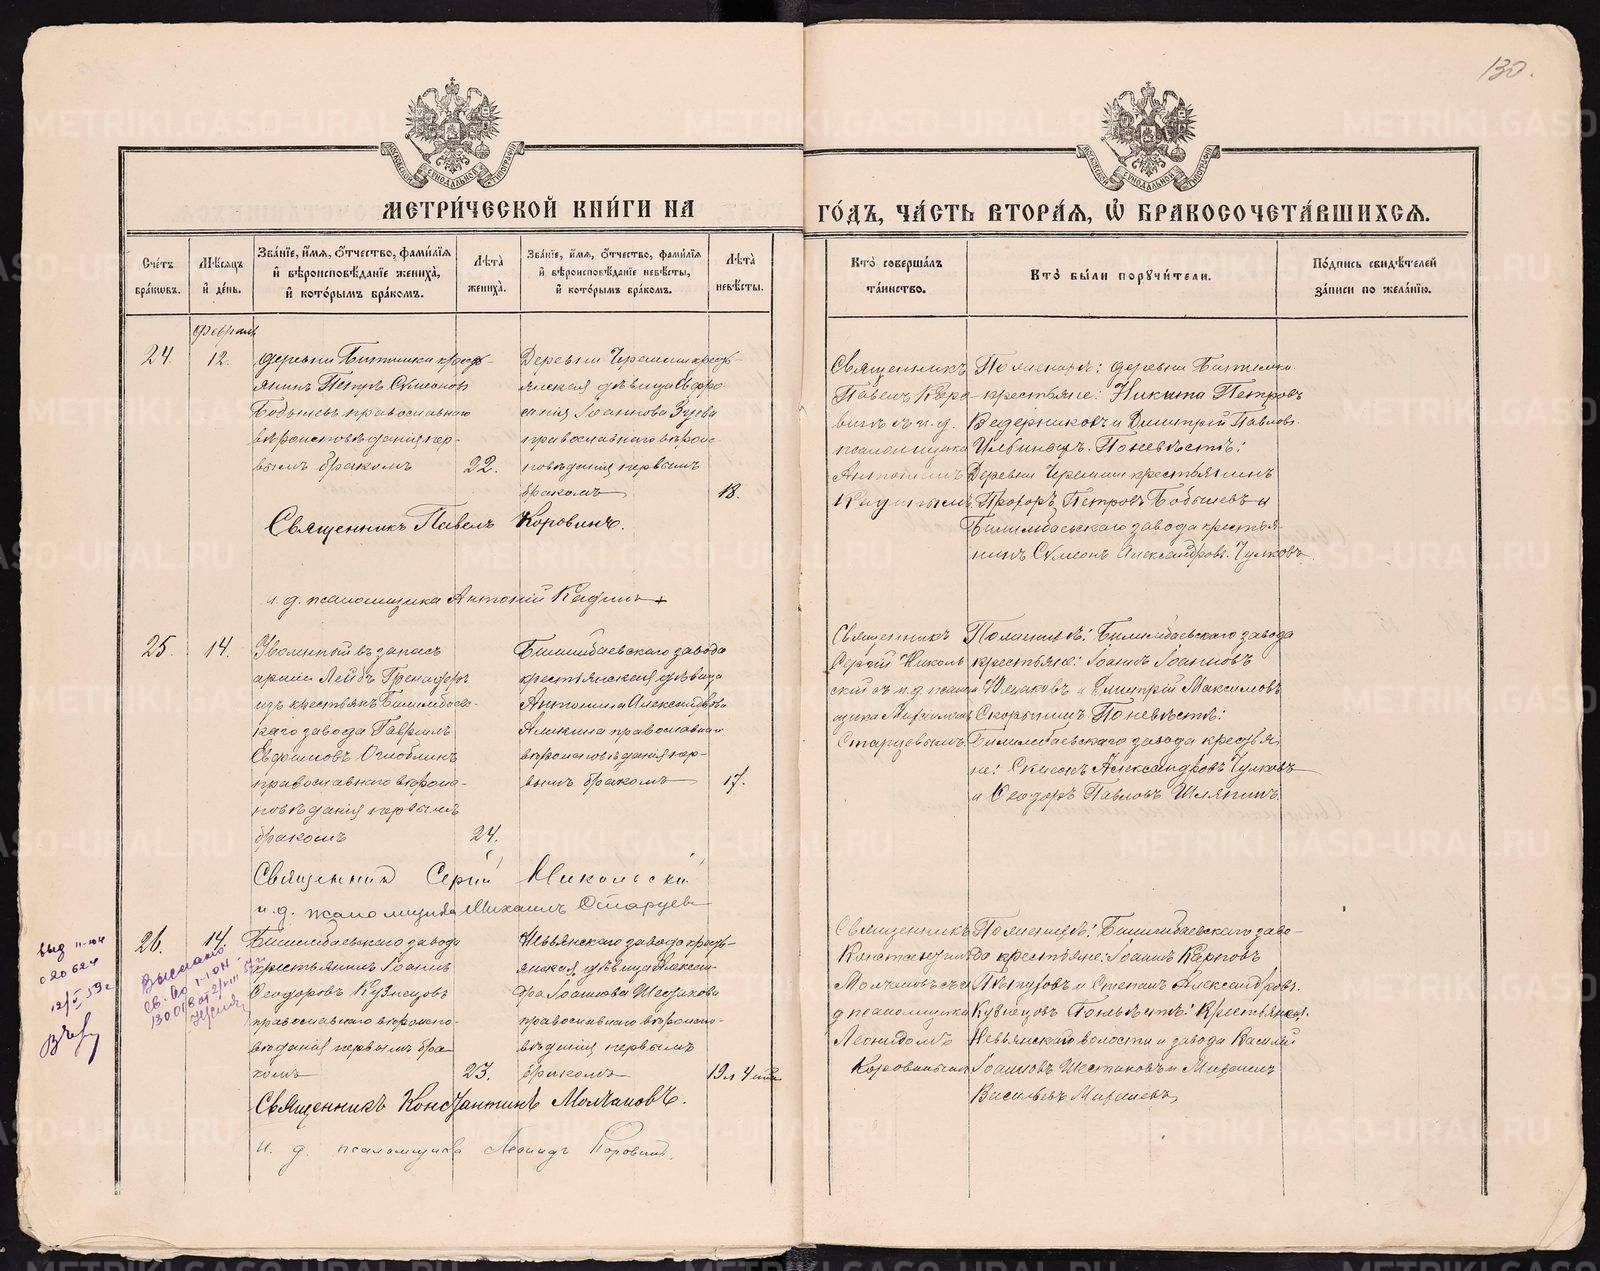 130.
МОСКОВСКОЙ СѴНОДАЛЬНОЙ ТИПОГРАФІИ
МОСКОВСКОЙ СѴНОДАЛЬНОЙ ТИПОГРАФІИ
МЕТРИ́ЧЕСКОЙ КНИ́ГИ НА
ГО́ДЪ, ЧА́СТЬ ВТОРА́Ѧ, Ѡ҆ БРАКОСОЧЕТА́ВШИХСѦ.
Сче́тъ бра́кѡвъ.
Мѣ́сѧцъ и҆ де́нь.
Зва́нїе, и҆́мѧ, ѻ҆́тчество, фами́лїѧ
и҆ вѣроисповѣ́данїе жениха̀,
и҆ кото́рымъ бра́комъ.
Лѣ́та жениха̀.
Зва́нїе, и҆́мѧ, ѻ҆́тчество, фами́лїѧ
и҆ вѣроисповѣ́данїе невѣ́сты,
и҆ кото́рымъ бра́комъ.
Лѣ́та невѣ́сты.
Кто̀ соверша́лъ та́инство.
Кто̀ бы́ли порꙋчи́тели.
По́дпись свидѣ́телей за́писи по жела́нїю.
Февраль
24.
12.
деревни Битимки кресть-
янинъ Петръ Симеоновъ
Бобышевъ православнаго
вѣроисповѣданія пер-
вымъ бракомъ
22.
Деревни Черемши кресть-
янская дѣвица Евфро
синія Іоаннова Зуева
православнаго вѣроис
повѣданія первымъ
бракомъ
18.
Священникъ
Павелъ Коро
винъ съ и. д.
псаломщика
Антоніемъ
Кадинымъ
По женихѣ: деревни Битимки
крестьяне: Никита Петровъ
Ведерниковъ и Димитрій Павловъ
По невѣстѣ:
Деревни Черемши крестьянинъ
Прохоръ Петровъ Бобышевъ и
Билимбаевскаго завода крестья-
нинъ Симеонъ Александровъ Чулковъ.
Священникъ Павелъ Коровинъ.
и. д. псаломщика Антоній Кадинъ
25.
14.
Уволенный въ запасъ
арміи Лейбъ Гренадеръ
изъ крестьянъ Билимбаевс-
каго завода Гавріилъ
Евфимовъ Оглоблинъ
православнаго вѣроис-
повѣданія первымъ
бракомъ
24.
Билимбаевскаго завода
крестьянская дѣвица
Антонина Александрова
Аликина православнаго
вѣроисповѣданія пер-
вымъ бракомъ
17.
Священникъ
Сергій Николь
скій съ и. д. псалом
щика Михаиломъ
Старцевымъ
По женихѣ: Билимбаевскаго завода
крестьяне: Іоаннъ Іоанновъ
и Димитрій Максимовъ
Скорынинъ По невѣстѣ:
Билимбаевскаго завода крестья
не: Симеонъ Александровъ Чулковъ
и Ѳеодоръ Павловъ Шляпинъ.
Священникъ Сергій Никольскій
и. д. псаломщика Михаилъ Старцевъ
26.
14.
Билимбаевскаго завода
крестьянинъ Іоаннъ
Ѳеодоровъ Кузнецовъ
православнаго вѣроиспо-
вѣданія первымъ бра
комъ
23.
Невьянскаго завода кресть-
янская дѣвица Алексан-
дра Іоаннова Шестакова
православнаго вѣроиспо-
вѣданія первымъ
бракомъ
19 л 4 мѣс
Священникъ
Константинъ
Молчановъ съ и
д псаломщика
Леонидомъ
Коровинымъ
По женихѣ: Билимбаевскаго заво-
да крестьяне: Іоаннъ Карповъ
и Степанъ Александровъ
Кузнецовъ По невѣстѣ: Крестьяне
Невьянской волости и завода Василій
Іоанновъ Шестаковъ и Михаилъ
Васильевъ
Священникъ Константинъ Молчановъ.
и. д. псаломщика Леонидъ Коровинъ.
выд II-ЮЧ
020624
Выслано
св. во I-ЮН